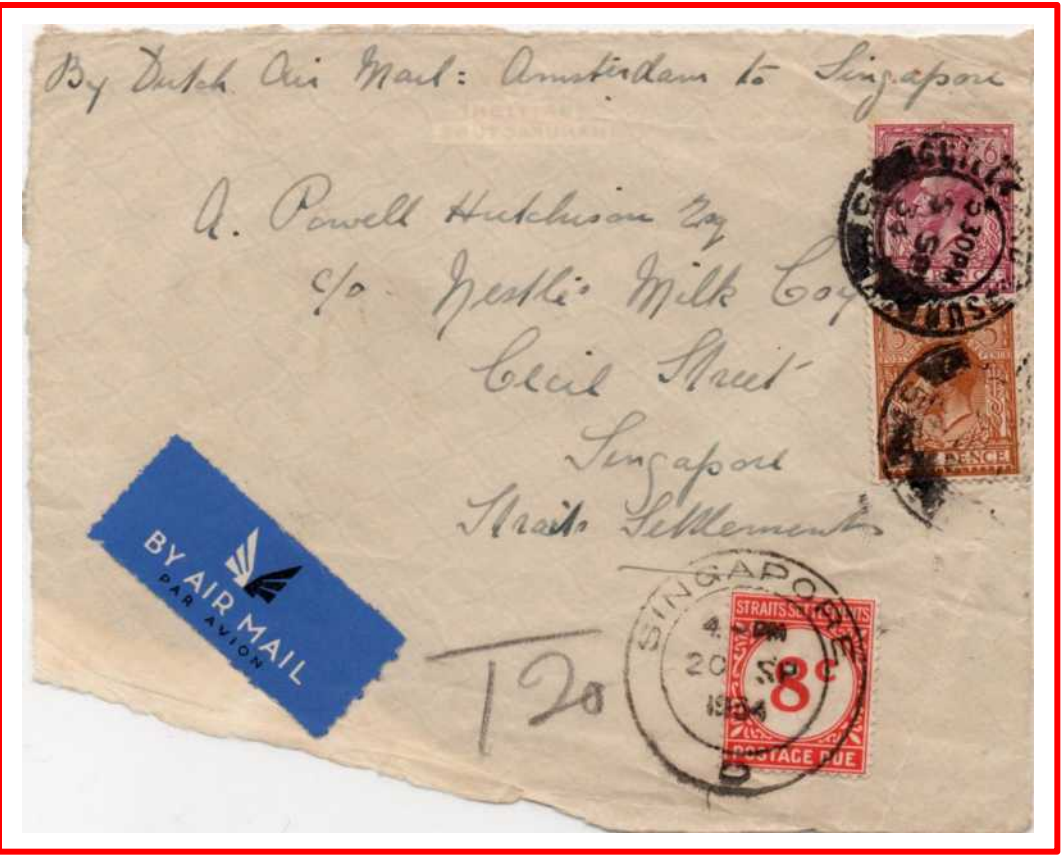 By Dutch Air Mail: Amsterdam to Singapore
A. Powell Hutchison Esq
c/o. Nestlé's Milk Coy
Cecil Street
Singapore
Straits Settlements
6
5.30PM
SP
34
SURREY
PENCE
BY AIR MAIL
PAR AVION
T20
SINGAPORE
PM
20 SP
1934
D
STRAITS SETTLEMENTS
8c
POSTAGE DUE